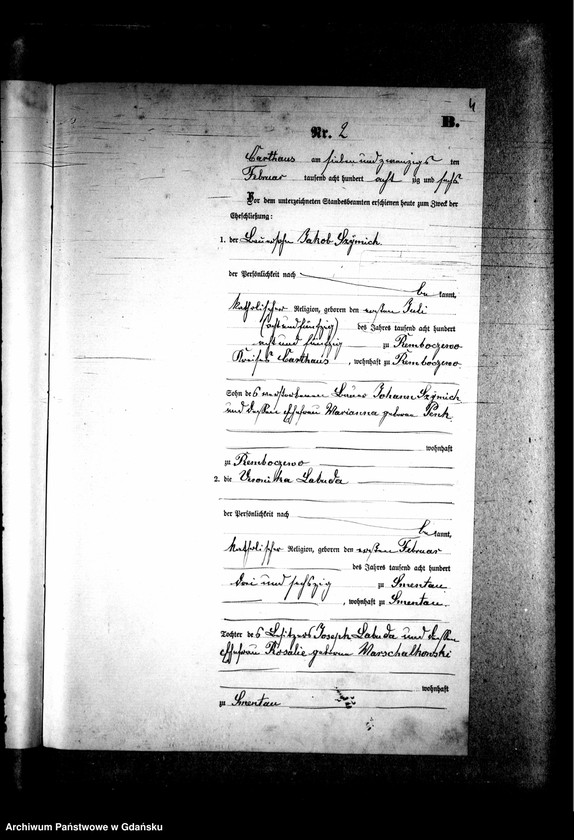 4
B.
Nr. 2
Carthaus am sieben und zwanzigs ten
Februar tausend acht hundert acht zig und sechs
Vor dem unterzeichneten Standesbeamten erschienen heute zum Zweck der
Eheschließung:
1. der Bauersohn Jakob Szÿmich
der Persönlichkeit nach
be kannt,
katholischer Religion, geboren den ersten Juli
(acht und fünfzig) des Jahres tausend acht hundert
acht und fünfzig zu Remboczewo
Kreises Carthaus, wohnhaft zu Remboczewo
Sohn des verstorbenen Bauer Johann Szÿmich
und dessen Ehefrau Marianna geborene Penk
wohnhaft
zu Remboczewo
2. die Veronika Labuda
der Persönlichkeit nach
be kannt,
katholischer Religion, geboren den ersten Februar
des Jahres tausend acht hundert
drei und sechszig zu Smentau
, wohnhaft zu Smentau
Tochter des Besitzers Joseph Labuda und dessen
Ehefrau Rosalie geborene Marschalkowski
wohnhaft
zu Smentau
Archiwum Państwowe w Gdańsku